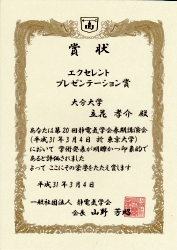 賞状
エクセレント
プレゼンテーション賞
大分大学
立花 孝介 殿
あなたは第20回静電気学会春期講演会
(平成31年3月4日 於 東京大学)
において 学術発表が明瞭かつ素晴らしいものであると評価されました
よって ここにその栄誉をたたえ賞します
平成31年3月4日
一般社団法人 静電気学会
会長 山野 芳昭